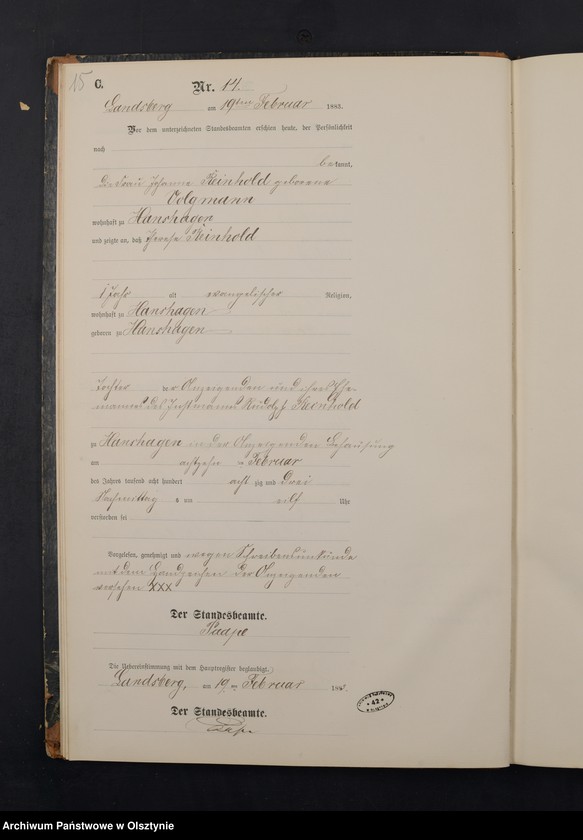 15
C.
Nr. 14.
Landsberg am 19ten Februar 1883.
Vor dem unterzeichneten Standesbeamten erschien heute, der Persönlichkeit
nach
bekannt,
die Frau Johanne Reinhold geborene
Volgmann
wohnhaft zu Hanshagen
und zeigte an, daß Therese Reinhold
1 Jahr alt evangelischer Religion,
wohnhaft zu Hanshagen
geboren zu Hanshagen
Tochter der Anzeigenden und ihres Ehe-
mannes des Instmanns Rudolf Reinhold
zu Hanshagen in der Anzeigenden Behausung
am achtzehn ten Februar
des Jahres tausend acht hundert acht zig und drei
Vormittag s um elf Uhr
verstorben sei
Vorgelesen, genehmigt und wegen Schreibensunkunde
mit dem Handzeichen der Anzeigenden
versehen XXX
Der Standesbeamte.
Die Uebereinstimmung mit dem Hauptregister beglaubigt.
Landsberg, am 19 ten Februar 188
Der Standesbeamte.
42
Archiwum Państwowe w Olsztynie